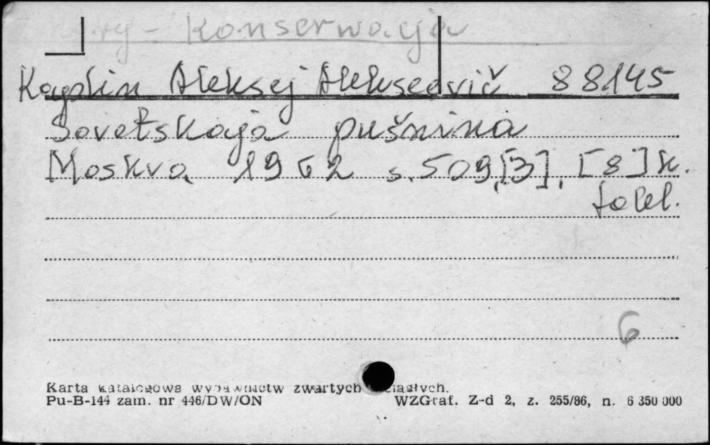 Konserwacja
Kaplin Aleksej Alekseevič 88145
Sovetskaja pušnina
Moskva 1962 s. 509,[3], [8] k.
tabl.
6
Karta katalogowa wydawnictw zwartych i ciągłych.
Pu-B-144 zam. nr 446/DW/ON WZGraf. Z-d 2, z. 255/86, n. 6 350 000